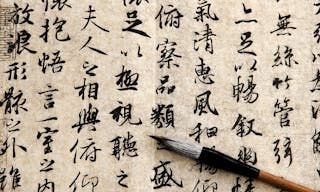 無絲竹管弦
足以暢叙幽
氣清惠風和暢仰
俯察品類之盛
足以極視聽之
夫人之相與俯仰
懷抱悟言一室之內
放浪形骸之外雖